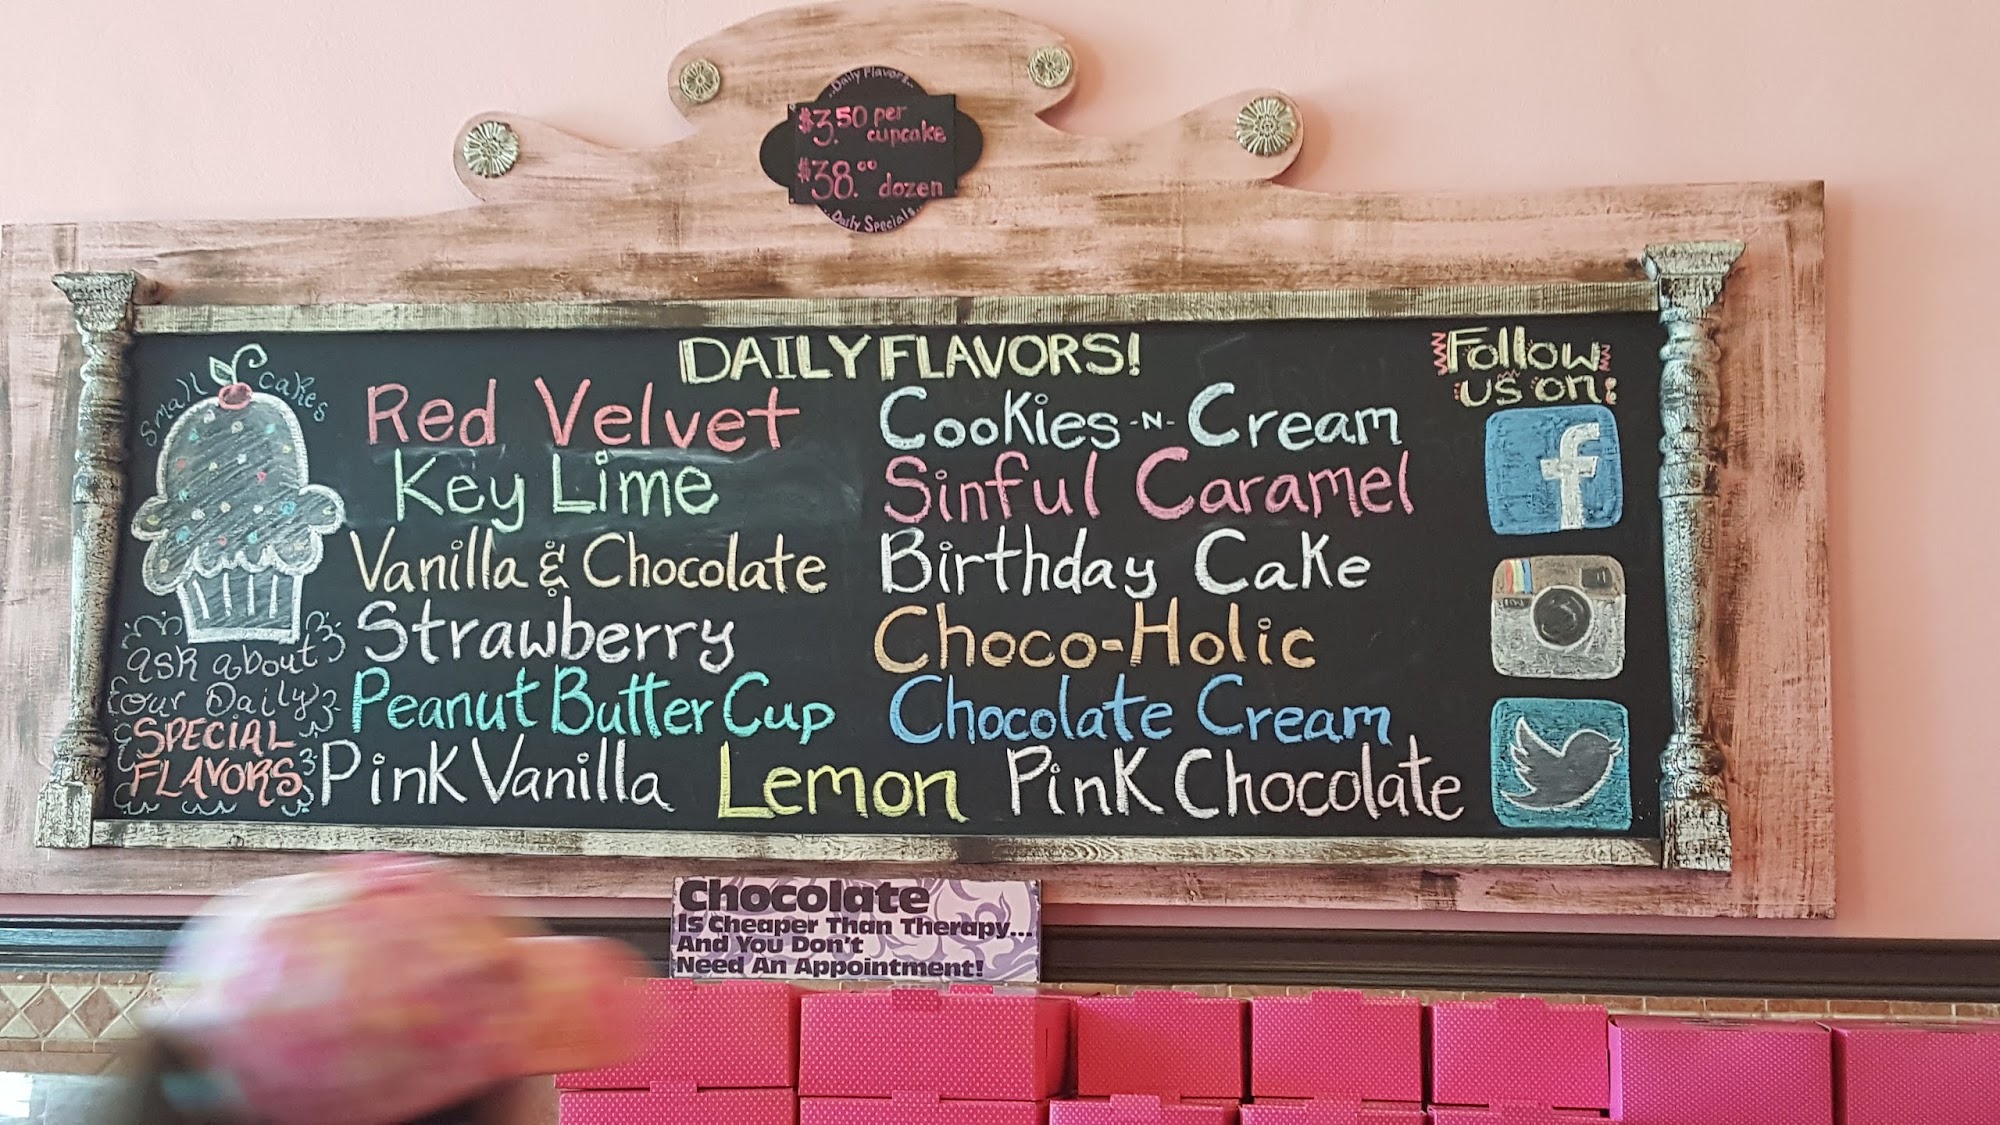 ..Daily Flavors..
$3.50 per cupcake
$38.00 dozen
..Daily Specials..
DAILY FLAVORS!
small cakes
Red Velvet
Key Lime
Vanilla & Chocolate
Strawberry
Peanut Butter Cup
Pink Vanilla
Lemon
Cookies-N-Cream
Sinful Caramel
Birthday Cake
Choco-Holic
Chocolate Cream
Pink Chocolate
ask about
our Daily
SPECIAL
FLAVORS
Follow
us on:
f
Chocolate
Is Cheaper Than Therapy...
And You Don't
Need An Appointment!